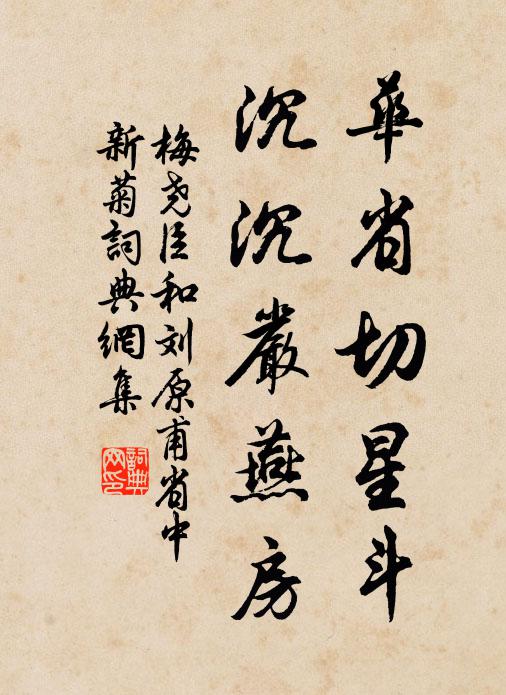 華省切星斗
沉沉嚴燕房
梅尧臣和刘原甫省中
新菊詞典網集
詞典网印